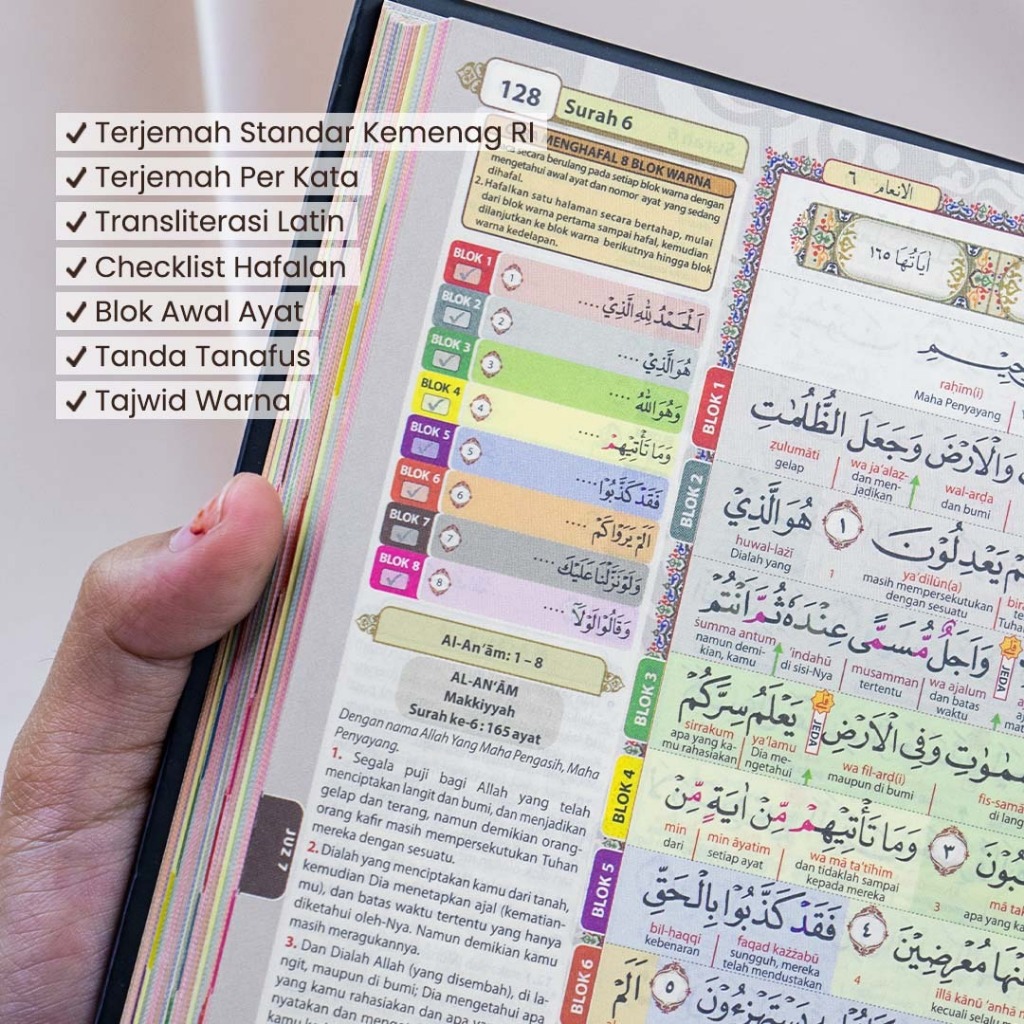 ✓ Terjemah Standar Kemenag RI
✓ Terjemah Per Kata
✓ Transliterasi Latin
✓ Checklist Hafalan
✓ Blok Awal Ayat
✓ Tanda Tanafus
✓ Tajwid Warna
128
Surah 6
MENGHAFAL 8 BLOK WARNA
secara berulang pada setiap blok warna dengan
mengetahui awal ayat dan nomor ayat yang sedang
dihafal.
2. Hafalkan satu halaman secara bertahap, mulai
dari blok warna pertama sampai hafal, kemudian
dilanjutkan ke blok warna berikutnya hingga blok
warna kedelapan.
BLOK 1 1 اَلْحَمْدُ لِلّٰهِ الَّذِيْ ....
BLOK 2 2 هُوَ الَّذِيْ ....
BLOK 3 3 وَهُوَ اللّٰهُ ....
BLOK 4 4 وَمَا تَأْتِيْهِمْ ....
BLOK 5 5 فَقَدْ كَذَّبُوْا ....
BLOK 6 6 اَلَمْ يَرَوْا كَمْ ....
BLOK 7 7 وَلَوْ نَزَّلْنَا عَلَيْكَ ....
BLOK 8 8 وَقَالُوْا لَوْلَآ ....
Al-An'ām: 1 – 8
AL-AN'ĀM
Makkiyyah
Surah ke-6 : 165 ayat
Dengan nama Allah Yang Maha Pengasih, Maha
Penyayang.
1. Segala puji bagi Allah yang telah
menciptakan langit dan bumi, dan menjadikan
gelap dan terang, namun demikian orang-
orang kafir masih mempersekutukan Tuhan
mereka dengan sesuatu.
2. Dialah yang menciptakan kamu dari tanah,
kemudian Dia menetapkan ajal (kematian-
mu), dan batas waktu tertentu yang hanya
diketahui oleh-Nya. Namun demikian kamu
masih meragukannya.
3. Dan Dialah Allah (yang disembah), di la-
ngit, maupun di bumi; Dia mengetahui apa
yang kamu rahasiakan dan apa yang
nyatakan dan
JUZ 7
الانعام ٦
اٰيَاتُهَا ١٦٥
raḥīm(i)
Maha Penyayang
BLOK 1
وَالْاَرْضَ وَجَعَلَ الظُّلُمٰتِ
ẓulumāti wa ja'alaẓ- wal-arḍa
gelap dan men- dan bumi
jadikan
BLOK 2
يَعْدِلُوْنَ ١ هُوَ الَّذِيْ
huwal-lażī 1 ya'dilūn(a)
Dialah yang masih mempersekutukan
dengan sesuatu
وَاَجَلٌ مُّسَمًّى عِنْدَهٗ ثُمَّ اَنْتُمْ
ṡumma antum 'indahū musamman wa ajalum
namun demi- di sisi-Nya tertentu dan batas
kian, kamu waktu
JEDA
BLOK 3
وَفِى الْاَرْضِ يَعْلَمُ سِرَّكُمْ
JEDA
sirrakum ya'lamu wa fil-arḍ(i)
apa yang ka- Dia me- maupun di bumi
mu rahasiakan ngetahui
BLOK 4
٣ وَمَا تَأْتِيْهِمْ مِّنْ اٰيَةٍ مِّنْ
min min āyatim wa mā ta'tīhim 3
dari setiap ayat dan tidaklah sampai apa yang
kepada mereka
BLOK 5
مُعْرِضِيْنَ ٤ فَقَدْ كَذَّبُوْا بِالْحَقِّ
bil-ḥaqqi faqad każżabū 4 illā kānū 'anhā
kebenaran sungguh, mereka kecuali selalu
telah mendustakan
BLOK 6
يَسْتَهْزِءُوْنَ ٥ اَلَمْ